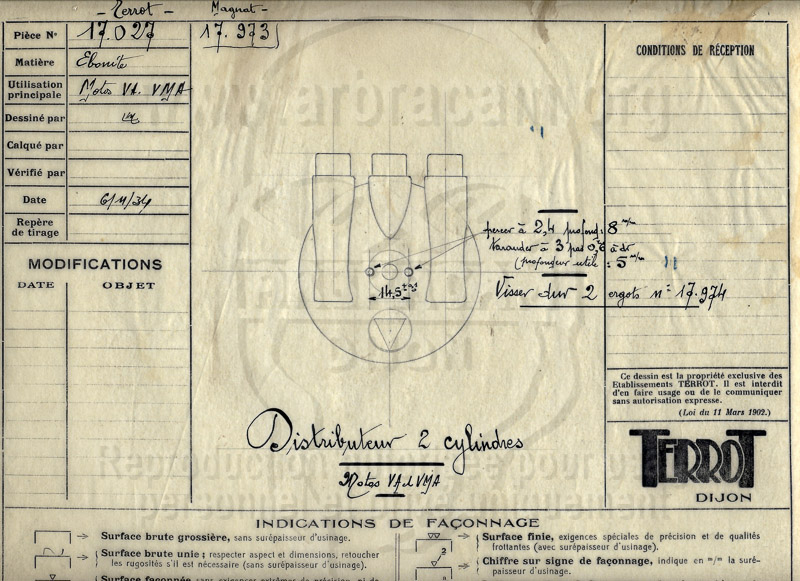 - Terrot -
Magnat -
Pièce N° 17.027
17.973
Matière Ebonite
Utilisation principale Motos VA. VMA
Dessiné par
Calqué par
Vérifié par
Date 6/11/34
Repère de tirage
MODIFICATIONS
DATE OBJET
CONDITIONS DE RÉCEPTION
percer à 2,4 profond: 8 m/m
tarauder à 3 pas 0,6 à dr
(profondeur utile : 5 m/m
14,5
Visser dur 2 ergots n° 17.974
Distributeur 2 cylindres
Motos VA et VMA
Ce dessin est la propriété exclusive des
Etablissements TERROT. Il est interdit
d'en faire usage ou de le communiquer
sans autorisation expresse.
(Loi du 11 Mars 1902.)
TERROT
DIJON
INDICATIONS DE FAÇONNAGE
Surface brute grossière, sans surépaisseur d'usinage.
Surface brute unie ; respecter aspect et dimensions, retoucher
les rugosités s'il est nécessaire (sans surépaisseur d'usinage).
Surface façonnée sans exigences extrêmes de précision, ni de
Surface finie, exigences spéciales de précision et de qualités
frottantes (avec surépaisseur d'usinage).
2
Chiffre sur signe de façonnage, indique en m/m la suré-
paisseur d'usinage.